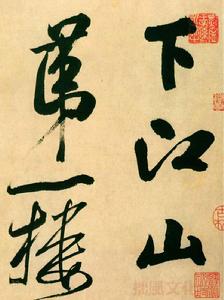 下江山
第一樓